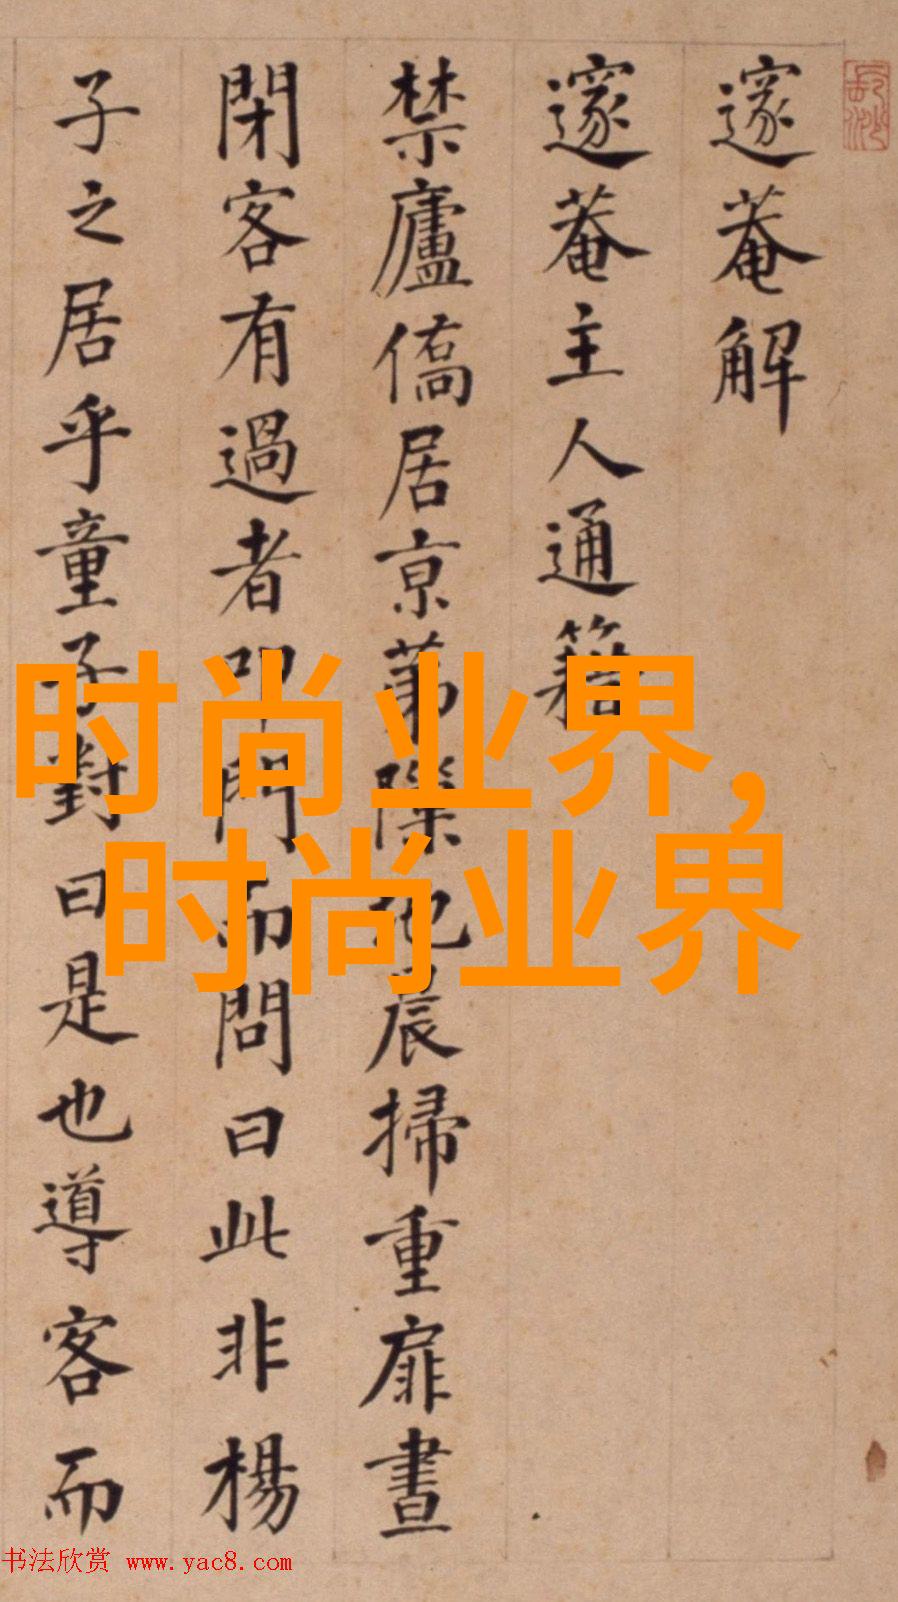 邃菴解
邃菴主人通籍
禁廬僑居京苐隙地晨掃重扉晝
閉客有過者叩門而問曰此非楊
子之居乎童子對曰是也導客而
时尚业界，
时尚业界
书法欣赏 www.yac8.com